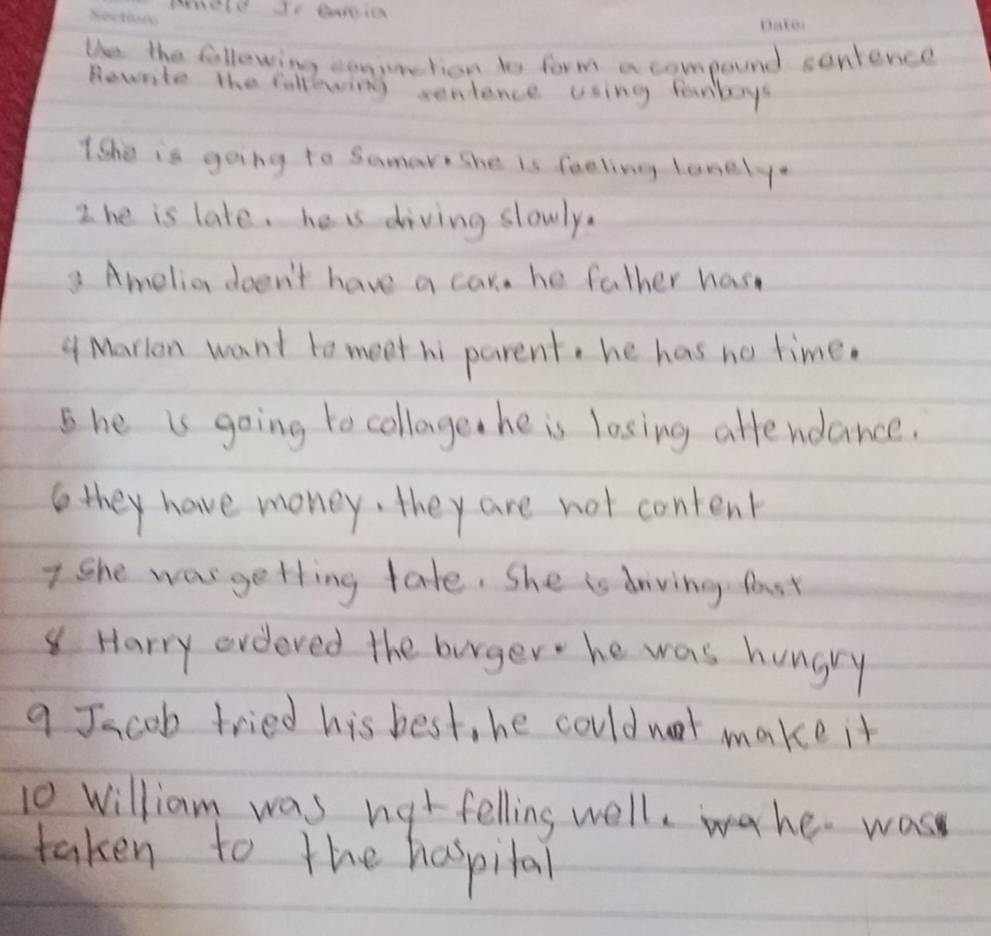 Section:
Jr Garcia
Date:
Use the following conjunction to form a compound sentence
Rewrite the following sentence using fanboys
1 She is going to Samar. She is feeling lonely.
2 he is late. he is driving slowly.
3 Amelia doen't have a car. he father has.
4 Marlon want to meet hi parent. he has no time.
5 he is going to collage. he is losing attendance.
6 they have money. they are not content
7 She was getting late. She is driving fast
8 Harry ordered the burger. he was hungry
9 Jacob tried his best. he could not make it
10 William was not felling well. he was
taken to the hospital